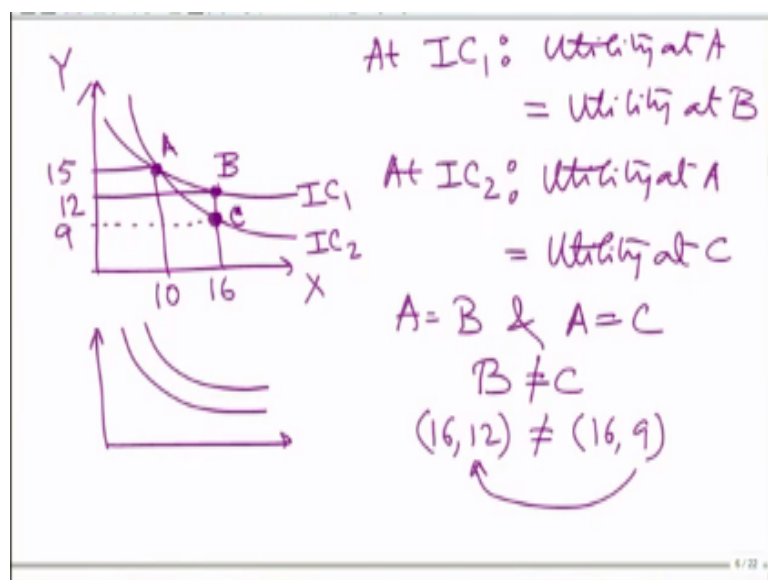 Y
15
12
9
A
B
C
IC₁
IC₂
10 16 X
At IC₁: Utility at A
= Utility at B
At IC₂: Utility at A
= Utility at C
A = B & A = C
B ≠ C
(16, 12) ≠ (16, 9)
6/22